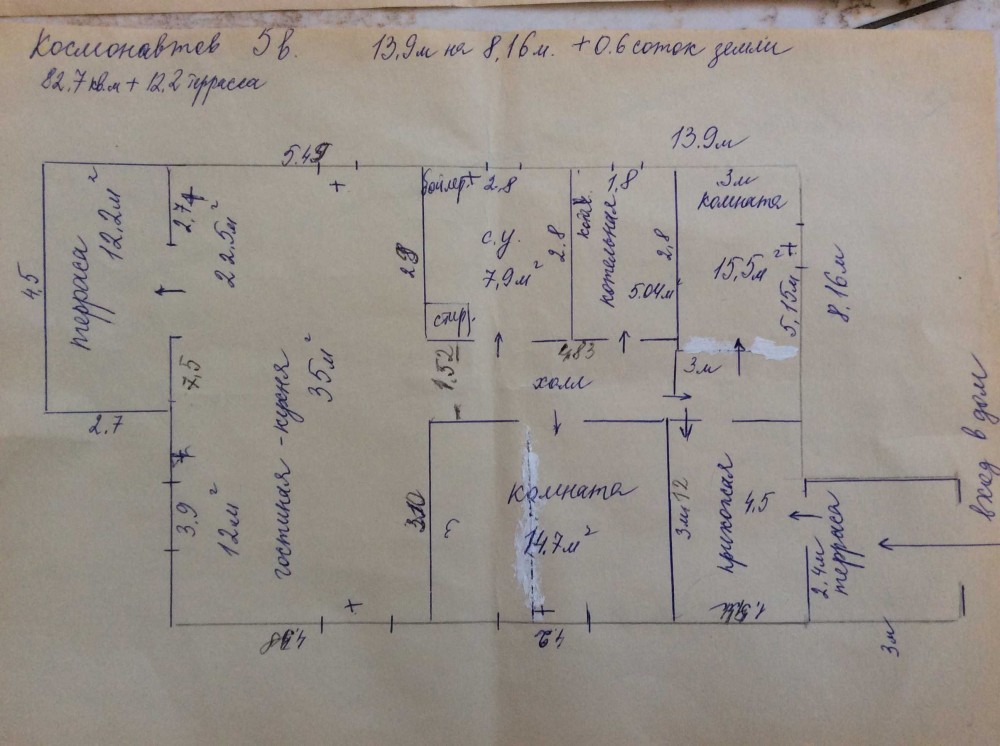 Космонавтов 5в. 13,9м на 8,16м. +0.6 соток земли
82.7 кв.м + 12.2 терраса
13.9м
5.45
терраса
12,2м²
4,5
2.7
2,7
22.5м²
7,5
3.9
12м²
гостиная-кухня
35м²
бойлер
2,8
с.у.
7,9м²
2.8
стир.
1.52
1,8
котел
котельная
2,8
5.04м
3м
комната
15,5м²
5,15м
8,16м
4,83
3м
холл
комната
14.7м²
3м12
прихожая
4,5
2.4м
терраса
вход в дом
3м
4,2